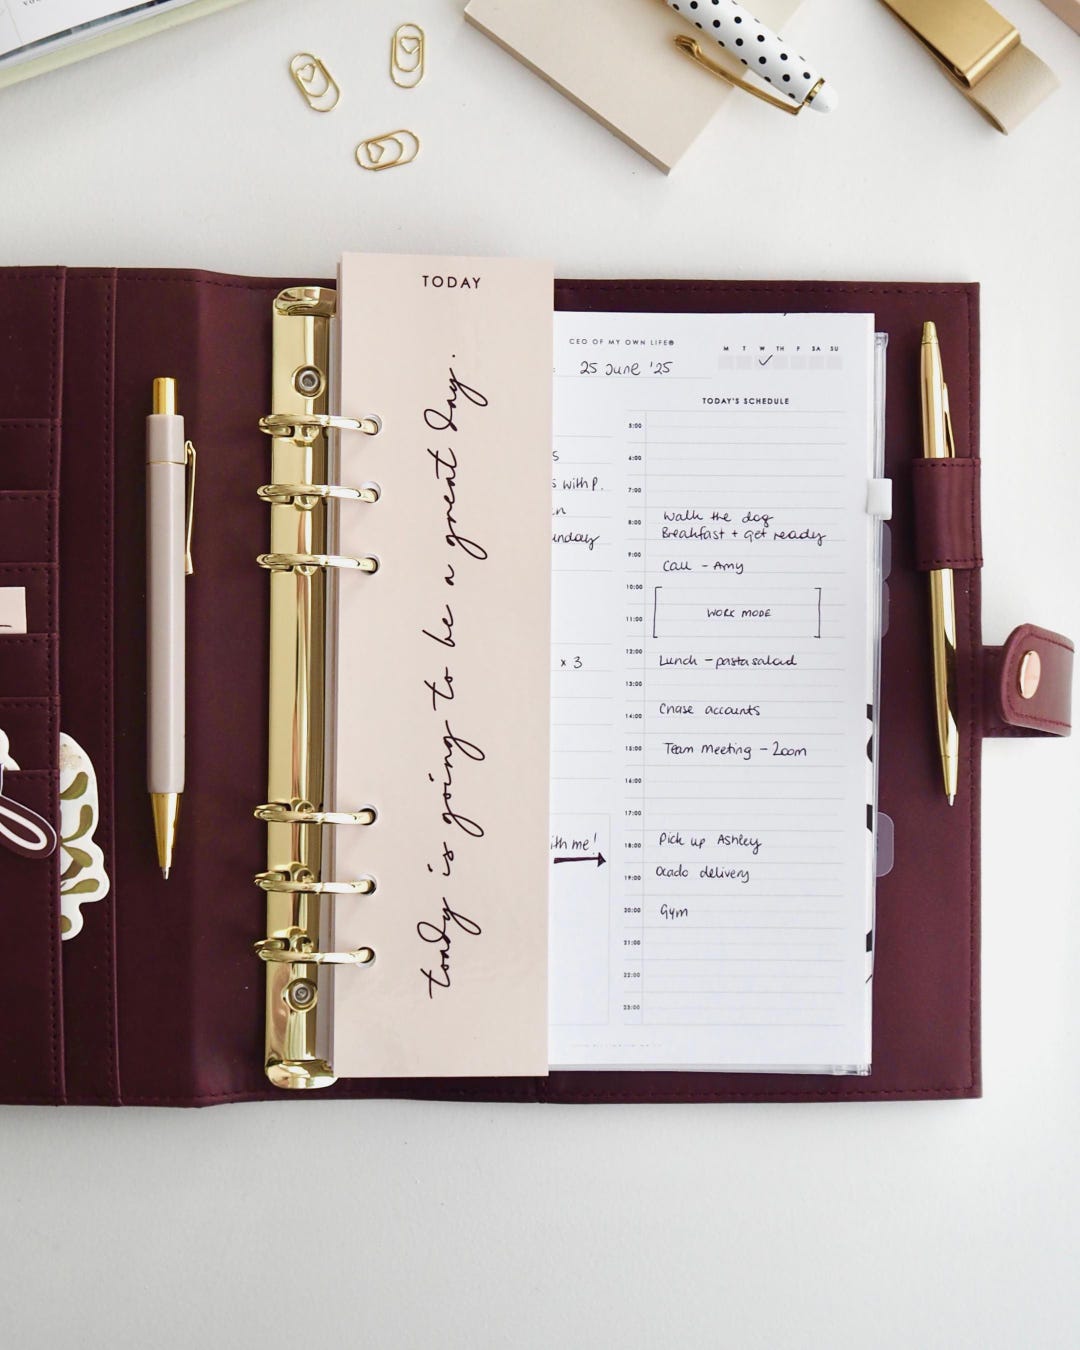 TODAY
today is going to be a great day.
CEO OF MY OWN LIFE®
M T W TH F SA SU
25 June '25
TODAY'S SCHEDULE
5:00
6:00
with P.
7:00
8:00 Walk the dog
Breakfast + get ready
9:00 Call - Amy
10:00
WORK MODE
11:00
12:00 Lunch - pasta salad
x 3
13:00
14:00 Chase accounts
15:00 Team meeting - Zoom
16:00
17:00
18:00 Pick up Ashley
me!
19:00 Ocado delivery
20:00 Gym
21:00
22:00
23:00